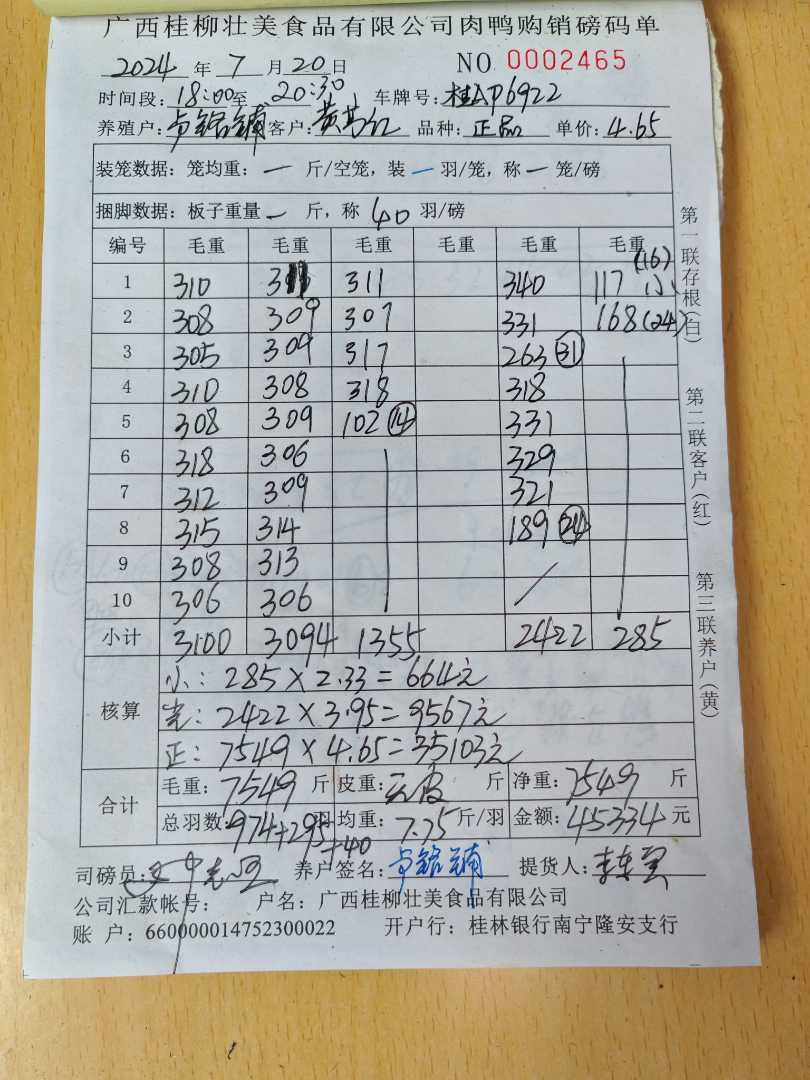 广西桂柳壮美食品有限公司肉鸭购销磅码单
2024 年 7 月 20 日 NO 0002465
时间段: 18:00 至 20:30 车牌号: 桂AP6922
养殖户: 卢铭铺 客户: 品种: 正品 单价: 4.65
装笼数据: 笼均重: 一 斤/空笼, 装 一 羽/笼, 称 一 笼/磅
捆脚数据: 板子重量 一 斤, 称 40 羽/磅
编号 毛重 毛重 毛重 毛重 毛重 毛重
1 310 311 340 117 (16) 小
2 308 309 307 331 168 (24)
3 305 309 317 263 (31)
4 310 308 318 318
5 308 309 102 (14) 331
6 318 306 329
7 312 309 321
8 315 314 189 (24)
9 308 313
10 306 306
小计 3100 3094 1355 2422 285
核算
小: 285 × 2.33 = 664元
2422 × 3.95 = 9567元
正: 7549 × 4.65 = 35103元
合计
毛重: 7549 斤 皮重: 斤 净重: 7549 斤
总羽数: 974+295+40 羽 均重: 7.75 斤/羽 金额: 45334 元
司磅员: 养户签名: 卢铭铺 提货人:
公司汇款帐号: 户名: 广西桂柳壮美食品有限公司
账 户: 660000014752300022 开户行: 桂林银行南宁隆安支行
第一联存根(白)
第二联客户(红)
第三联养户(黄)